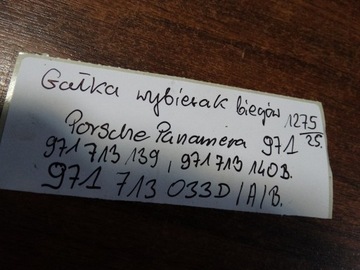 Gałka wybierak biegów 1275/25.
Porsche Panamera 971
971 713 139, 971 713 140B.
971 713 033D/A/B.